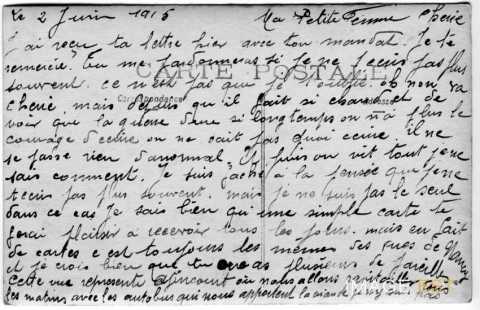 Le 2 Juin 1915 Ma Petite Femme Cherie
J'ai reçu ta lettre hier avec ton mandat. Je te
remercie. Tu me pardonneras si je ne t'ecris pas plus
souvent. ce n'est pas que je t'oublie. oh non va
CARTE POSTALE
Cherie mais depuis qu'il fait si chaud et de
Correspondance
voir que la guerre dure si longtemps on n'a plus le
courage d'ecrire on ne sait pas quoi ecrire il ne
se passe rien d'anormal. Et puis on vit tout je ne
sais comment. Je suis faché à la pensée que je ne
t'ecris pas plus souvent. mais je ne suis pas le seul
dans ce cas je sais bien qu'une simple carte te
ferai plaisir a recevoir tous les jours. mais en fait
de cartes c'est toujours les mêmes des rues de Nancy
et je crois bien que tu en as plusieurs de pareilles
cette vue represente où nous allons tous
les matins avec les autobus qui nous apportent la viande